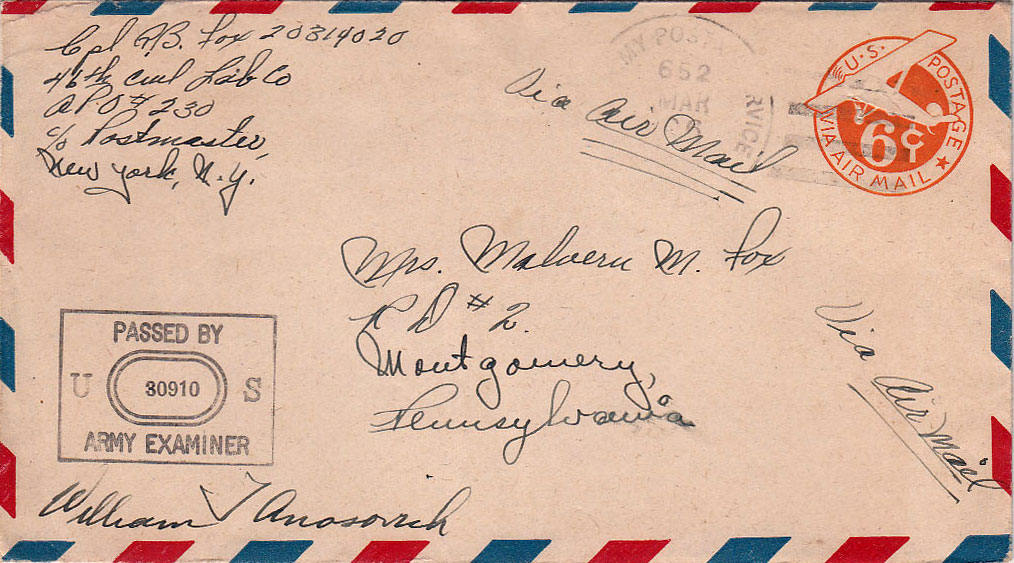 Cpl. P.B. Fox 20314020
46th Cml Lab Co
APO # 230
c/o Postmaster,
New York, N.Y.
MY POST
652
MAR
RVICE
U.S. POSTAGE
6¢
VIA AIR MAIL
Via Air Mail
Mrs. Malvern M. Fox
R D # 2.
Montgomery,
Pennsylvania
Via Air Mail
PASSED BY
U 30910 S
ARMY EXAMINER
William J Anosovich